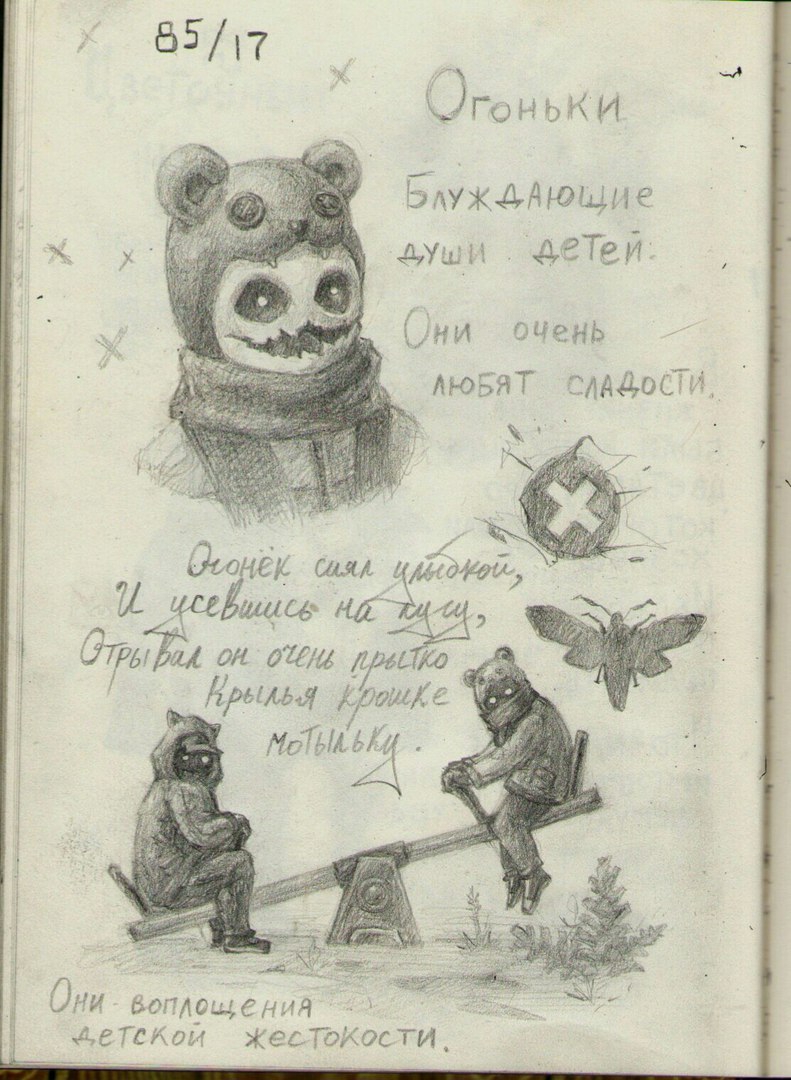 85/17
Огоньки
Блуждающие
души детей.
Они очень
любят сладости.
Огонёк сиял улыбкой,
И усевшись на суку,
Отрывал он очень прытко
Крылья крошке
мотыльку.
Они воплощения
детской жестокости.